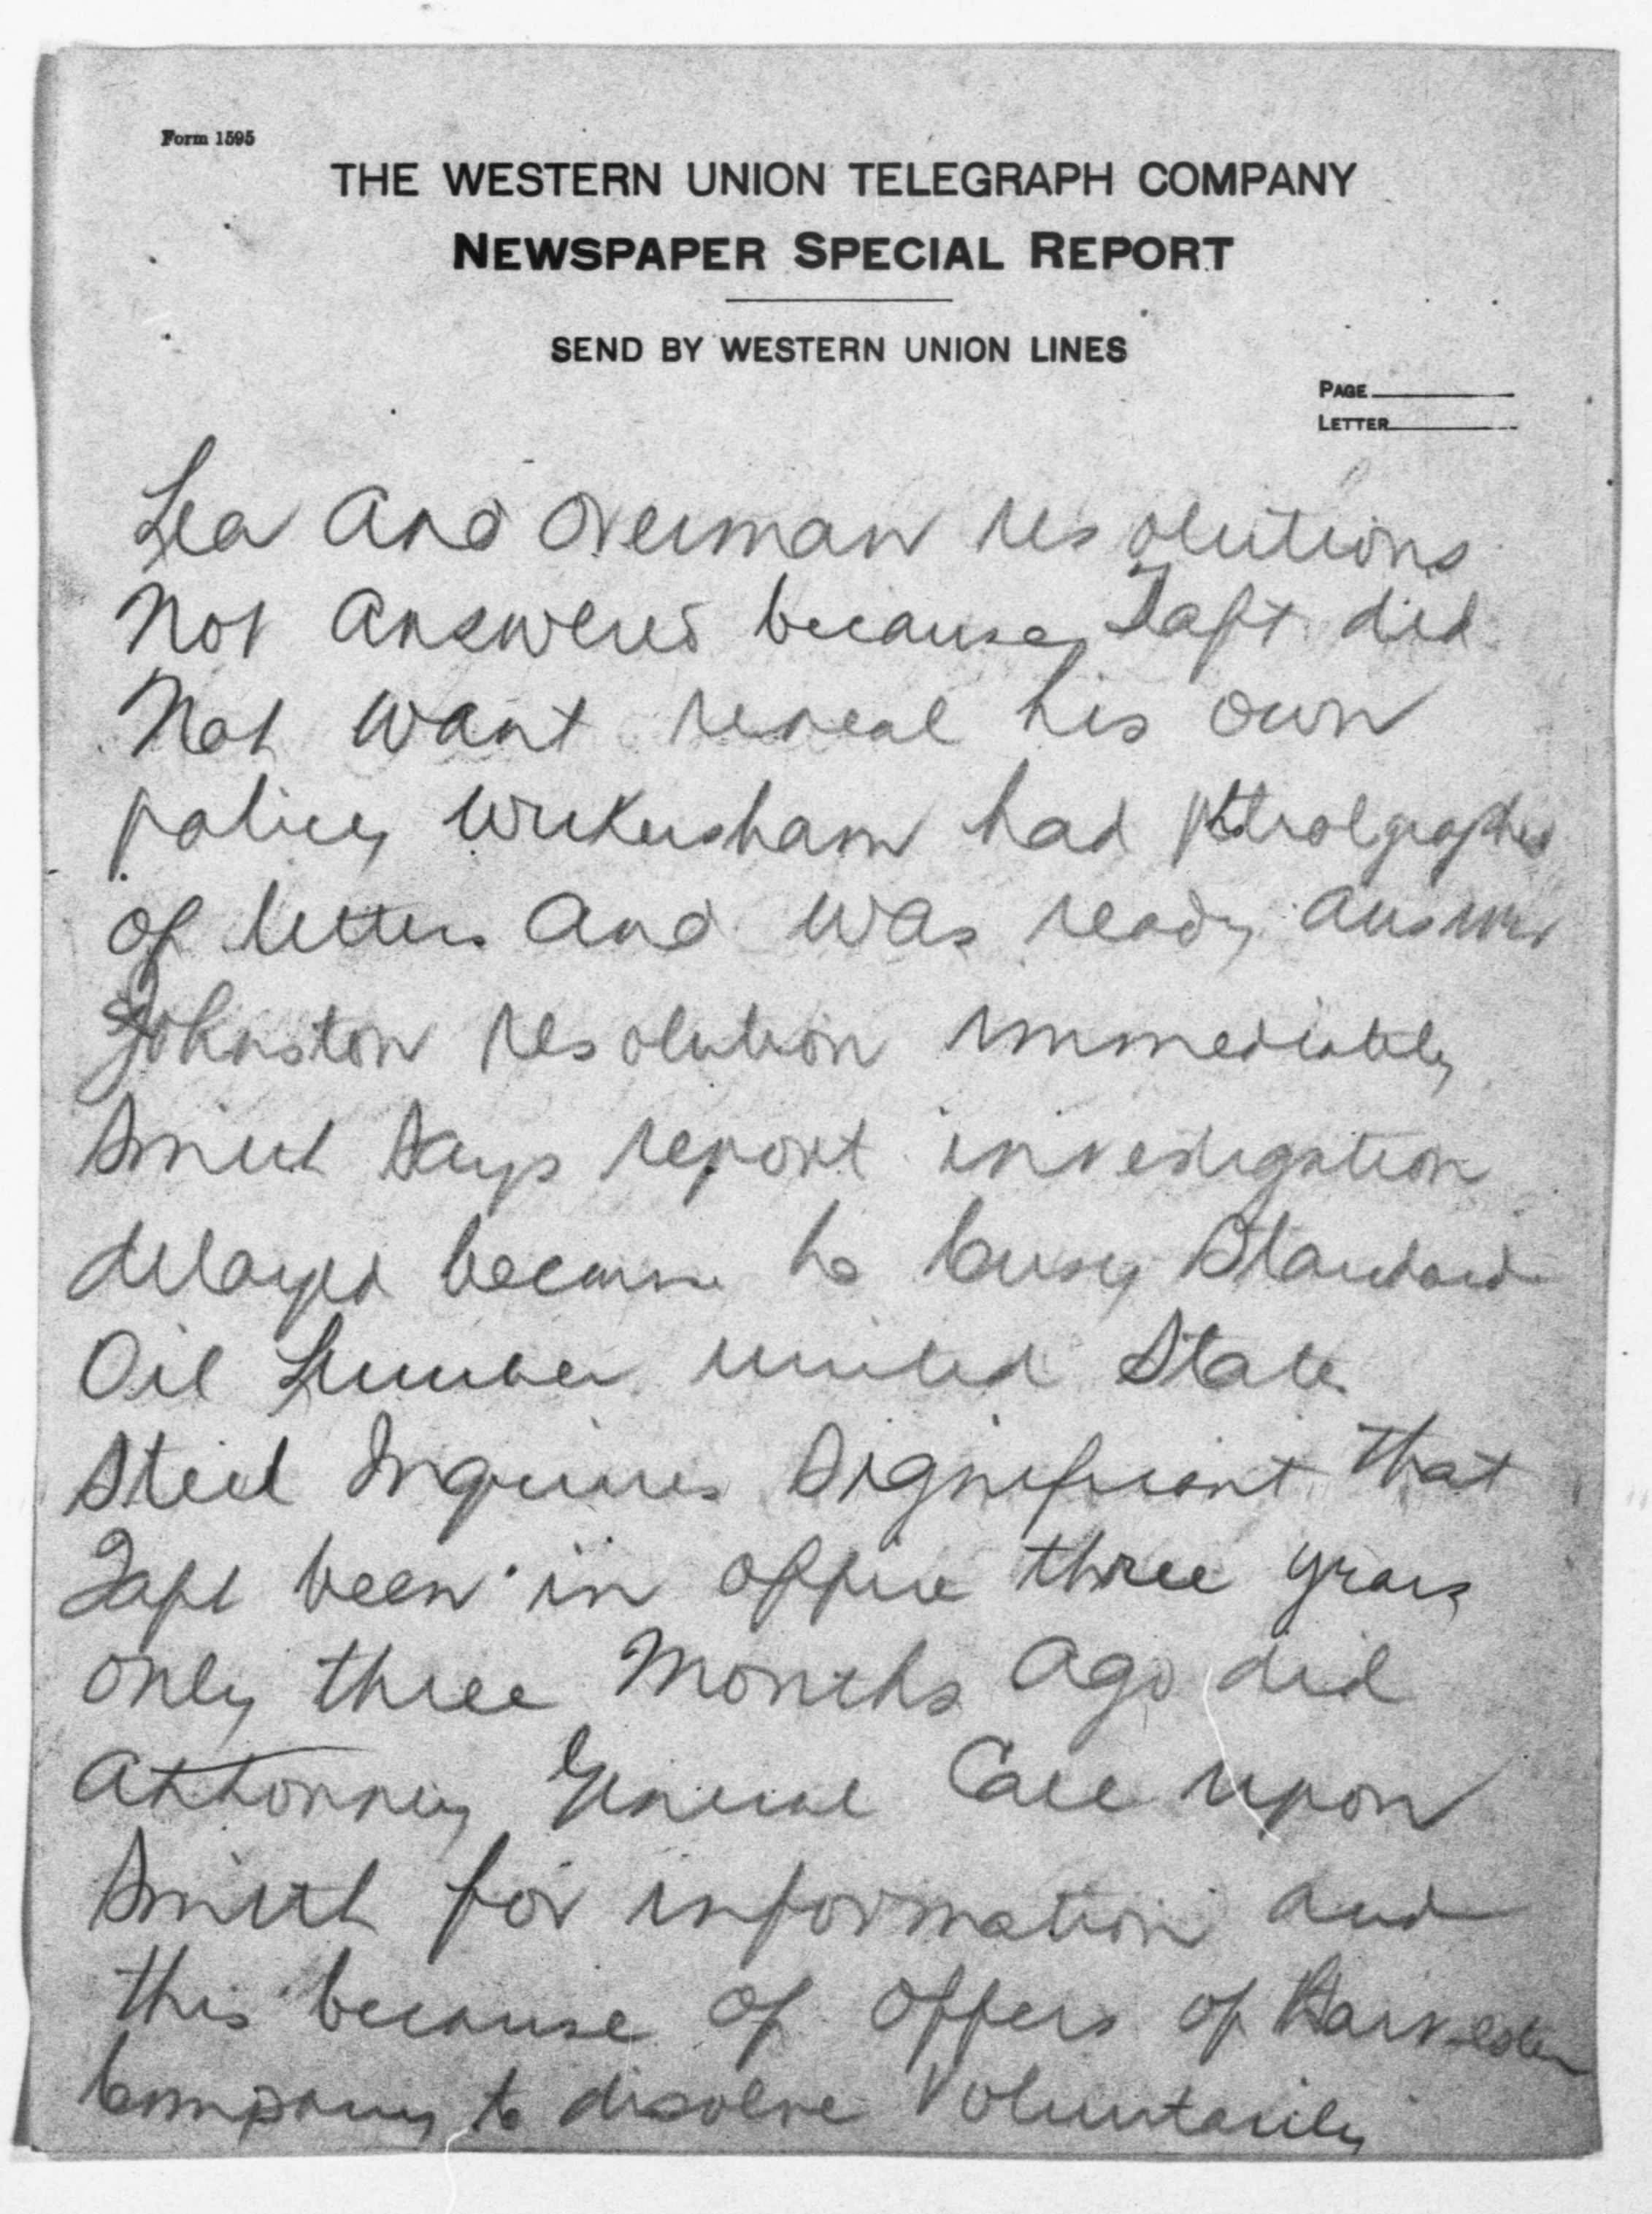 Form 1595
THE WESTERN UNION TELEGRAPH COMPANY
NEWSPAPER SPECIAL REPORT
SEND BY WESTERN UNION LINES
PAGE
LETTER
Lea and Overman resolutions
Not answered because Taft did
Not want reveal his own
policy Wickersham had
of letters and was ready answer
Johnston resolution immediately
Smith says report investigation
delayed because he busy Standard
Oil Lumber united States
Steel Inquiries Significant that
Taft been in office three years
only three Months ago did
Attorney General Call upon
Smith for information and
this because of offers of Harvester
Company to disolve Voluntarily